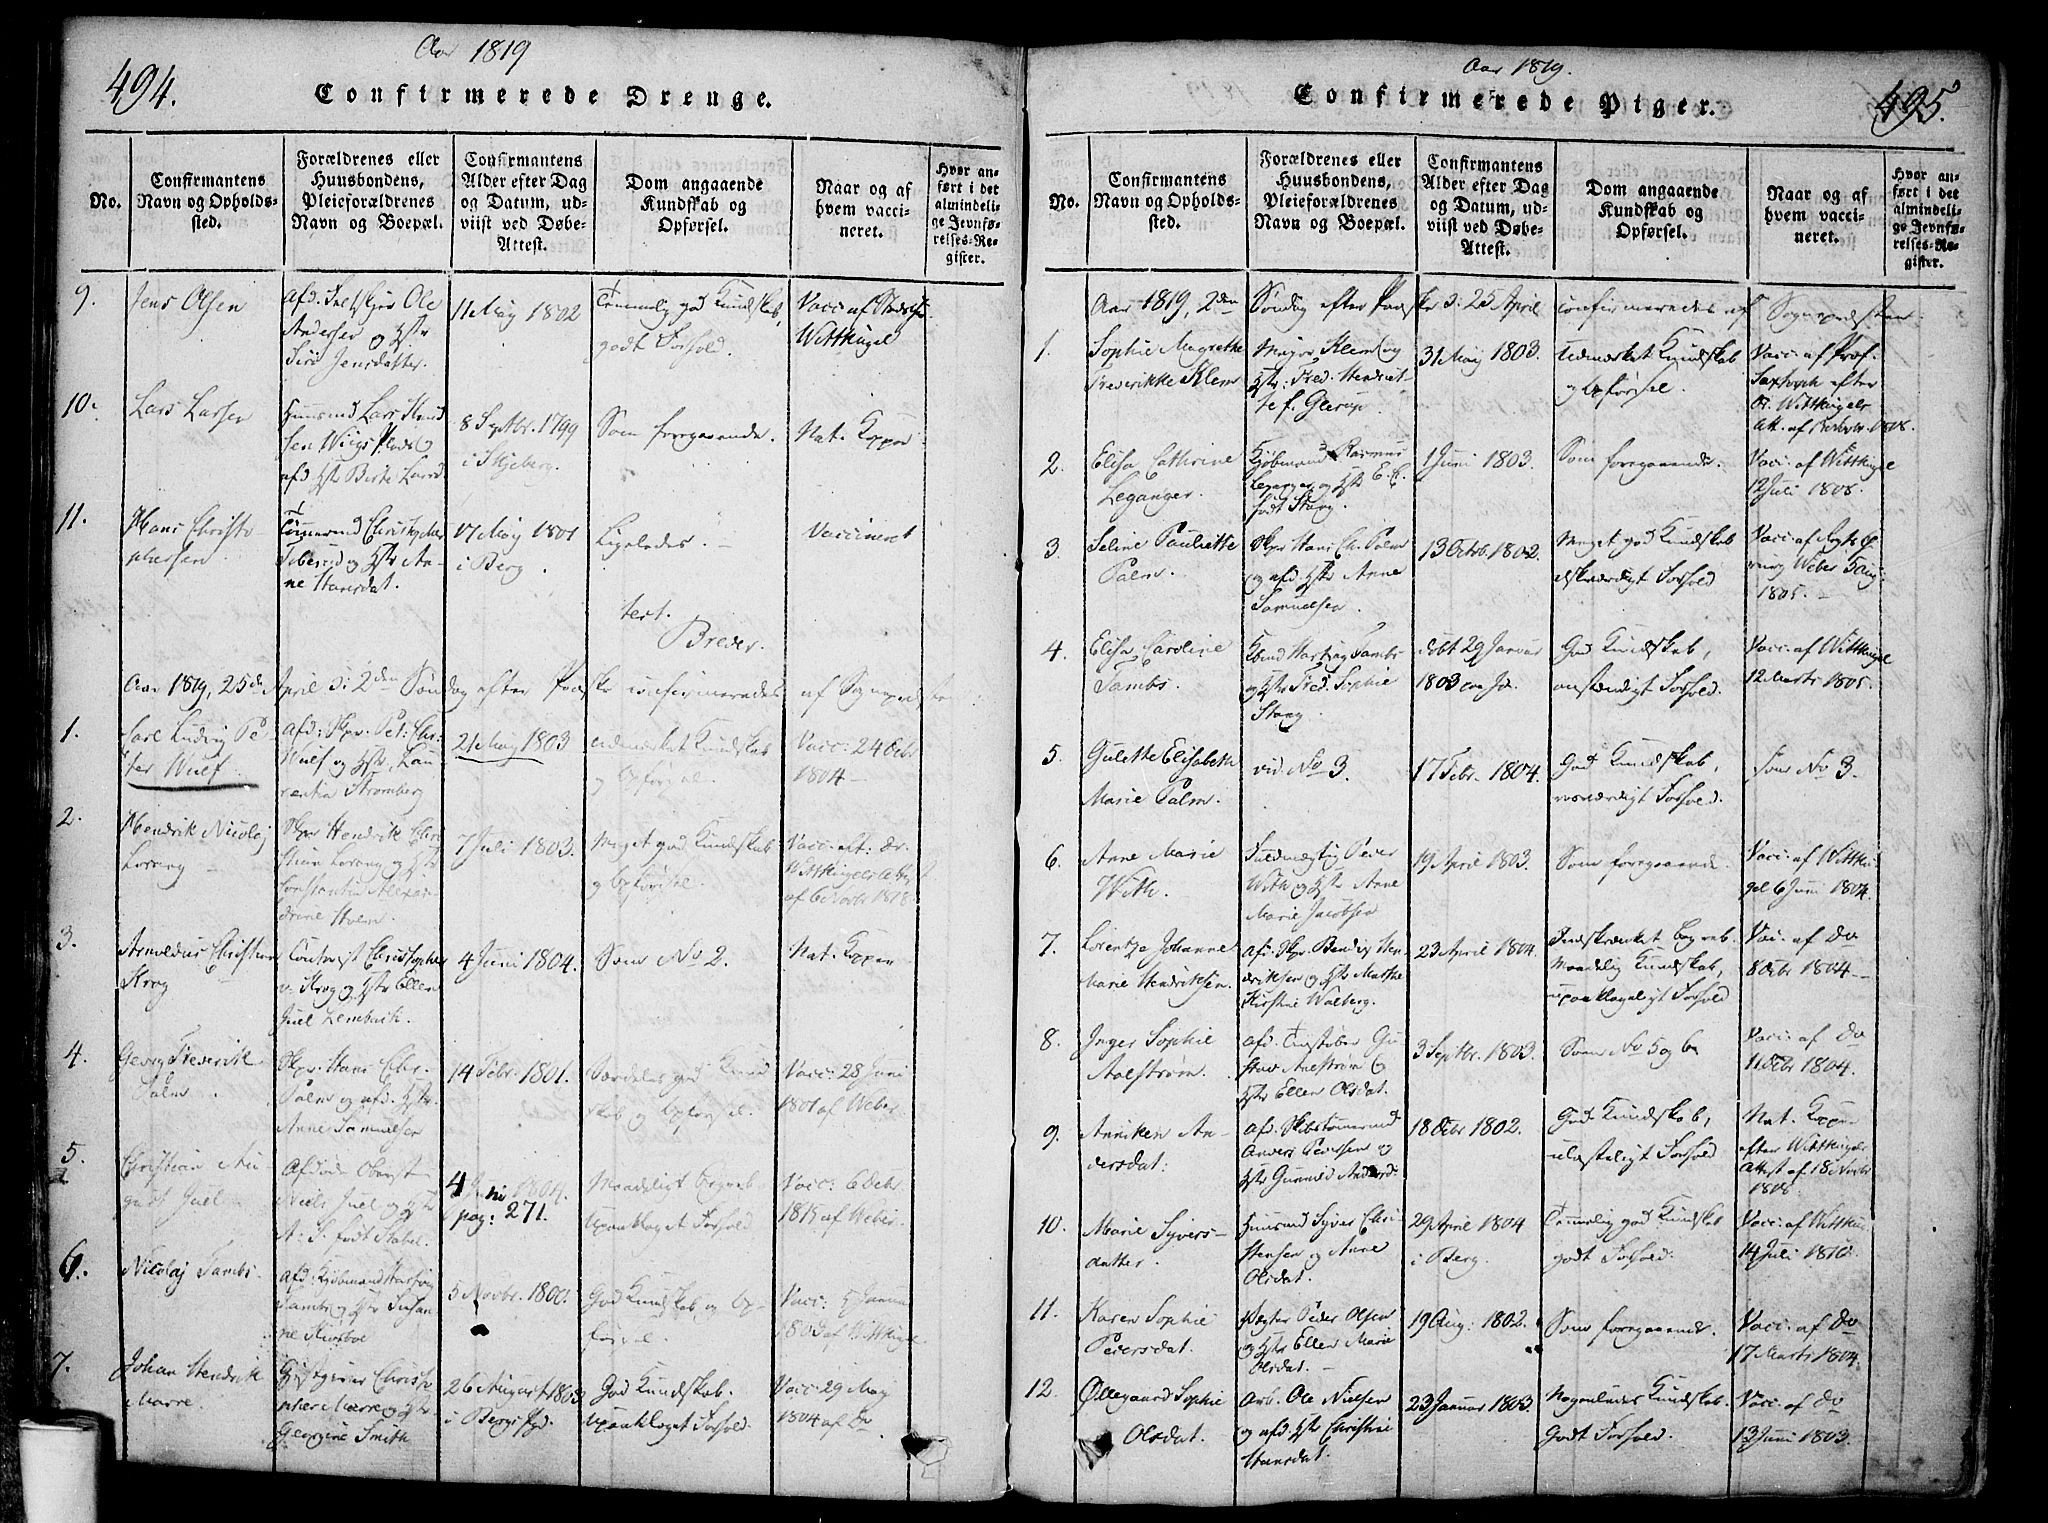 494.
Aar 1819
Confirmerede Drenge.
No.
Confirmantens
Navn og Opholds-
sted.
Forældrenes eller
Huusbondens,
Pleieforældrenes
Navn og Boepæl.
Confirmantens
Alder efter Dag
og Datum, ud-
viist ved Døbe-
Attest.
Dom angaaende
Kundskab og
Opførsel.
Naar og af
hvem vacci-
neret.
Hvor an-
ført i det
almindeli-
ge Jevnfø-
relses-Re-
gister.
9.
Jens Olsen
Ole
Andersen og Hstr
Siri Jensdatter.
11 May 1802
Temmelig god Kundskab,
godt Forhold.
Vacc. af
Wittkugel
10.
Lars Larsen
Huusmd Lars
afd Hstr Berte
8 Septbr. 1799
i Skjeberg.
Som foregaaende.
Nat. Kopper
11.
Hans Christo-
phersen
Christopher
og Hstr An-
ne Hansdat.
17 May 1801
i Berg.
Ligeledes. —
Vaccineret
test.
Breder.
Aar 1819, 25de April d: 2den Søndag efter Paaske confirmeredes af Sognepræsten
1.
Carl Ludvig Pe-
ter Wulf.
afd: Skpr. Pet: Chr:
Wulf og Hstr. Lau-
rentia Stromberg
21 May 1803
udmærket Kundskab
og Opførsel.
Vacc: 24 Octbr.
1804 —
2.
Hendrik Nicolaj
Lorang —
Skpr Hendrik Chri-
stian Lorang og Hstr
Constantia Alexan-
drine Holm.
7 Juli 1803.
Meget god Kundskab
og Opførsel.
Vacc. alt: Dr.
Wittkugels Att.
af 6 Novbr 1818.
3.
Arnoldus Christian
Krog
Christopher
v: Krog og Hstr Ellen
Juel Lembach.
4 Juni 1804.
Som No 2.
Nat. Kopper
4.
Georg Frederik
Palm.
Skpr. Hans Chr.
Palm og afd. Hstr.
Anne Samuelsen
14 Febr. 1801.
Særdeles god Kund-
skab og Opførsel.
Vacc: 28 Juni
1801 af Weber
5.
Christian Au-
gust Juel
Afdøde Oberst
Niels Juel og Hstr
A: S. født Stabel.
4 Juni 1804.
pag: 271.
Maadeligt Begreb
upaaklaget Forhold
Vacc: 6 Octbr.
af Weber.
6.
Nicolaj Tambs.
afd: Kjøbmand Hartvig
Tambs og Hstr Susan-
ne
5 Novbr. 1800.
God Kundskab og Op-
førsel.
Vacc: Januar
af Wittkugel
7.
Johan Hendrik
Marre.
Gjestgiver Christo-
pher Marre og Hstr.
Georgine Smith
26 August 1803
i Bergs Pgd.
God Kundskab.
upaaklaget Forhold
Vacc: 29 May
1804 af Do
Aar 1819.
495.
Confirmerede Piger.
No.
Confirmantens
Navn og Opholds-
sted.
Forældrenes eller
Huusbondens,
Pleieforældrenes
Navn og Boepæl.
Confirmantens
Alder efter Dag
og Datum, ud-
viist ved Døbe-
Attest.
Dom angaaende
Kundskab og
Opførsel.
Naar og af
hvem vacci-
neret.
Hvor an-
ført i det
almindeli-
ge Jevnfø-
relses-Re-
gister.
Aar 1819, 2den Søndag efter Paaske d: 25 April confirmeredes af Sognepræsten
1.
Sophie Magrethe
Frederikke Klem
Major Klem og
Hstr: Fred. Henriet-
te f. Glerup.
31 May 1803.
Udmærket Kundskab
og Opførsel.
Vacc. af Prof.
Saxtorph efter
Dr. Wittkugels
Att.
2.
Elisa Cathrine
Leganger.
Kjøbmand Rasmus
Leganger og Hstr E. C.
født Stang.
1 Juni 1803.
Som foregaaende.
Vacc. af Wittkugel
12 Juli 1808.
3.
Seline Pauliette
Palm.
Skpr Hans Chr. Palm
og afd. Hstr Anne
Samuelsen.
13 Octbr. 1802.
Meget god Kundskab
elskværdigt Forhold
Vacc. af
Weber 5 Aug:
1805. —
4.
Elisa Caroline
Tambs.
Kbmd Hartvig Tambs
og Hstr Fred. Sophie
Stang.
døbt 29 Januar
1803
God Kundskab,
anstændigt Forhold.
Vacc. af Wittkugel
12 Marts 1805.
5.
Gulette Elisabeth
Marie Palm.
vid. No 3.
17 Febr. 1804.
God Kundskab,
roesværdigt Forhold.
Som No 3.
6.
Anne Marie
With.
Fuldmægtig Peder
With og Hstr Anne
Marie Jacobsen
19 April 1803.
Som foregaaende.
Vacc. af Wittku-
gel 6 Juni 1804.
7.
Lorentze Johanne
Marie Hendriksen.
afd. Skpr. Hen-
driksen og Hstr Marthe
Kirstine Walberg.
23 April 1804.
Indskrænket Begreb
Maadelig Kundskab,
upaaklageligt Forhold
Vacc. af Do
8 Octbr 1804 —
8.
Inger Sophie
Aalstrøm.
afd. Gu-
stav Aalstrøm og
Hstr Ellen Olsdat.
3 Septbr. 1803.
Som No 5 og 6
Vacc. af Do
11 Octbr 1804.
9.
Anniken An-
dersdat:
afd. Skibstømmermd
Anders Pedersen og
Hstr Gunnild Andersd:
18 Octbr 1802.
God Kundskab,
ulasteligt Forhold
Nat. Kopper
efter Wittkugels
Attest af 18 Novbr
1818.
10.
Marie Syvers-
datter.
Huusmd Syver Chri-
stensen og Anne
Olsdat.
29 April 1804
i Berg.
Temmelig god Kundskab
godt Forhold.
Vacc. af Wittku-
14 Juli 1810.
11.
Karen Sophie
Pedersdat.
Peder Olsen
og Hstr Ellen Marie
Olsdat. —
19 Aug: 1802.
Som foregaaende.
Vacc. af Do
17 Marts 1804.
12.
Øllegaard Sophie
Olsdat.
Arb. Ole Nielsen
og afd. Hstr Christine
Hansdat.
23 Januar 1803.
Nogenlunde Kundskab.
Godt Forhold.
Vacc. af Do
13 Juni 1803.